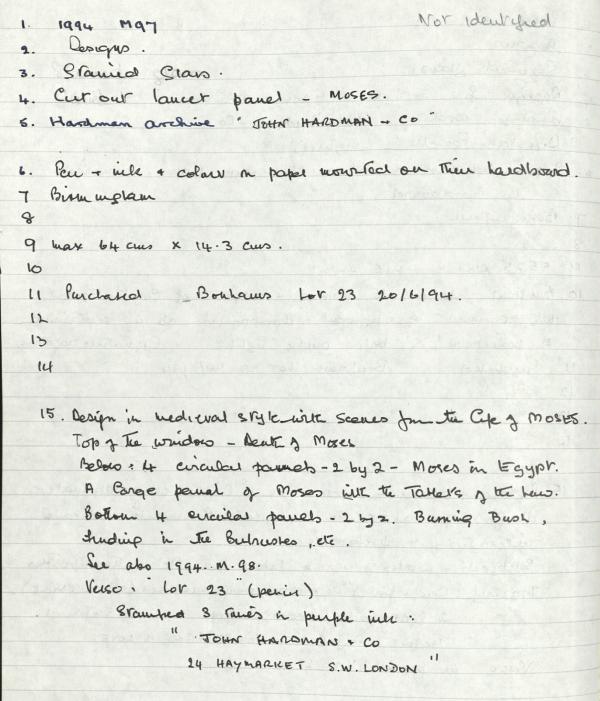 Not identified
1. 1994 M97
2. Designs.
3. Stained Glass.
4. Cut out lancet panel - MOSES.
5. Hardman archive "JOHN HARDMAN + CO"
6. Pen + ink + colour on paper mounted on thin hardboard.
7 Birmingham
8
9 max 64 cms x 14.3 cms.
10
11 Purchased Bonhams Lot 23 20/6/94.
12
13
14
15. Design in medieval style with scenes from the Life of MOSES.
Top of the window - Death of Moses
Below: 4 circular panels - 2 by 2 - Moses in Egypt.
A large panel of Moses with the Tablets of the Law.
Bottom 4 circular panels - 2 by 2. Burning Bush,
finding in the Bulrushes, etc.
See also 1994.M.98.
Verso: "Lot 23" (pencil)
Stamped 3 times in purple ink:
"JOHN HARDMAN + CO
24 HAYMARKET S.W. LONDON"